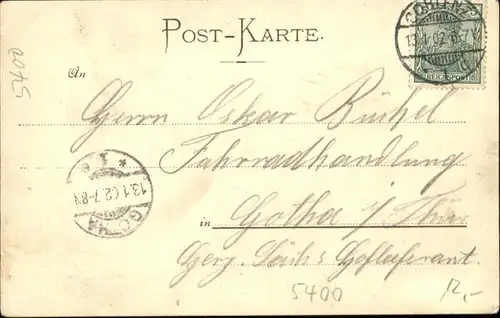 POST-KARTE.
COBLENZ
13.1.02.
REICHSPOST
5400
An
Herrn Oskar Büchel
Fahrradhandlung
in Gotha i/Thür
Herzg. Sächs Hoflieferant.
GOTHA
13.1.02.7-8V
* 1 e
5400
12,-